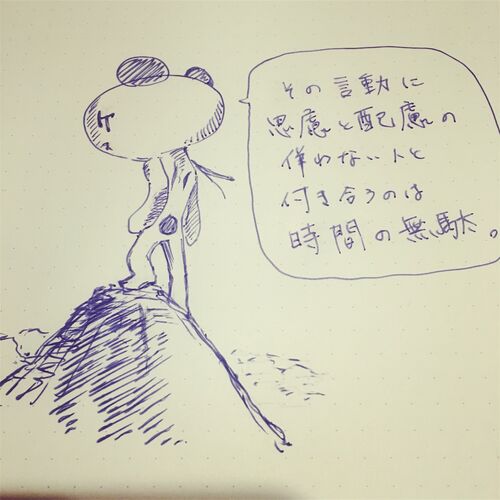 その言動に
思慮と配慮の
伴わない人と
付き合うのは
時間の無駄。